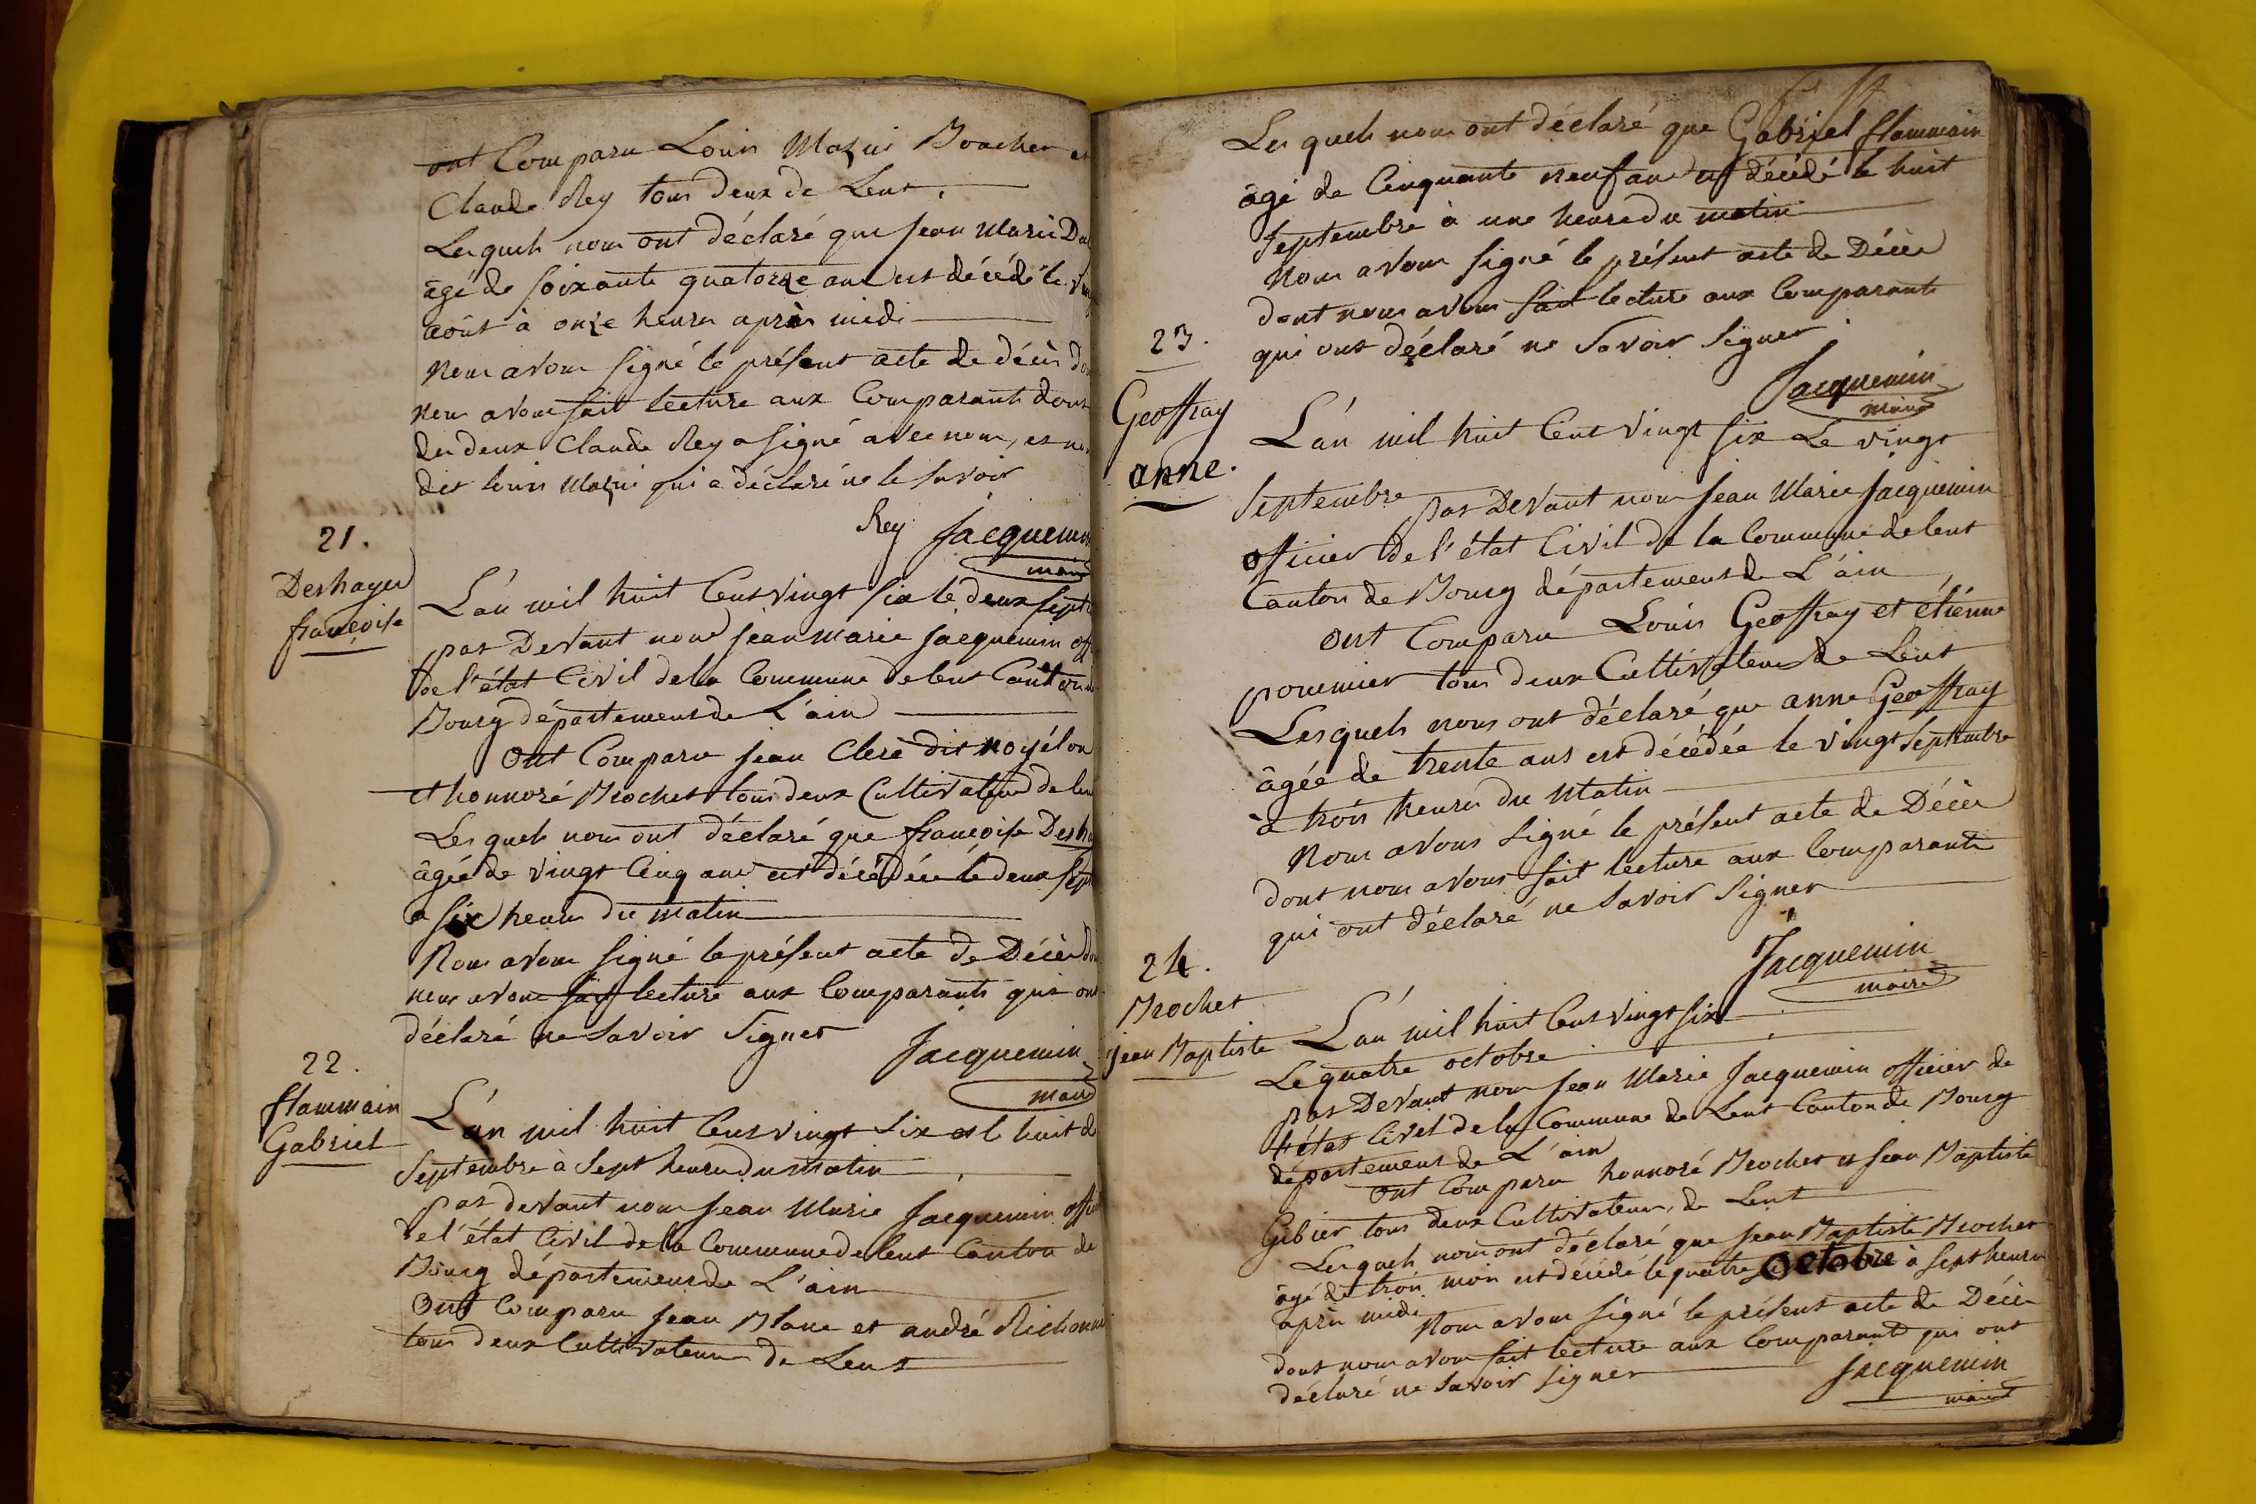 ont Comparu Louis Mazui Boucher et
Claude Rey tous deux de Lent.
Lesquels nous ont déclaré que Jean Marie
âgé de soixante quatorze ans est décédé le
août à onze heures après midi
Nous avons signé le présent acte de décès
nous avons fait lecture aux Comparants dont
des deux Claude Rey a signé avec nous, et
dit Louis Mazui qui a déclaré ne le savoir
Rey Jacquemin
maire
21.
Deshayes
françoise
L'an mil huit Cent vingt six le deux
par Devant nous Jean Marie Jacquemin
de l'état Civil de la Commune de Lent Canton
Bourg département de L'ain
Ont Comparu Jean Clerc dit Noyélon
et honnoré Brochet tous deux Cultivateurs de
Lesquels nous ont déclaré que françoise
âgée de vingt Cinq ans est décédée le deux
a six heures du matin
Nous avons signé le présent acte de Décès
nous avons fait lecture aux Comparants qui ont
déclaré ne savoir signer
Jacquemin
maire
22.
flammain
Gabriel
L'an mil huit Cent vingt six le huit
Septembre à Sept heures du matin
par devant nous Jean Marie Jacquemin
de l'état Civil de la Commune de Lent Canton de
Bourg département de L'ain
Ont Comparu Jean Blanc et andré
tous deux Cultivateurs de Lent
Lesquels nous ont déclaré que Gabriel flammain
âgé de Cinquante neuf ans est décédé le huit
Septembre à une heure du matin
Nous avons signé le présent acte de Décès
dont nous avons fait lecture aux Comparants
qui ont déclaré ne Savoir Signer
Jacquemin
maire
23.
Geoffray
anne.
L'an mil huit Cent vingt six Le vingt
Septembre par Devant nous Jean Marie Jacquemin
officier de l'état Civil de la Commune de Lent
Canton de Bourg département de L'ain
Ont Comparu Louis Geoffray et étiénne
poumier tous deux Cultivateurs de Lent
Lesquels nous ont déclaré que anne Geoffray
âgée de trente ans est décédée le vingt Septembre
à trois heures du Matin
Nous avons signé le présent acte de Décès
dont nous avons fait lecture aux Comparants
qui ont déclaré ne Savoir Signer
Jacquemin
maire
24.
Brochet
jean Baptiste
L'an mil huit Cent vingt six
Le quatre octobre
par Devant nous Jean Marie Jacquemin officier de
l'état Civil de la Commune de Lent Canton de Bourg
département de L'ain
Ont Comparu honnoré Brochet et Jean Baptiste
Gibier tous deux Cultivateurs de Lent
Lesquels nous ont déclaré que Jean Baptiste Brochet
âgé de trois mois est décédé le quatre Octobre à Sept heures
après midi
Nous avons signé le présent acte de Décès
dont nous avons fait lecture aux Comparants qui ont
déclaré ne Savoir signer
Jacquemin
maire